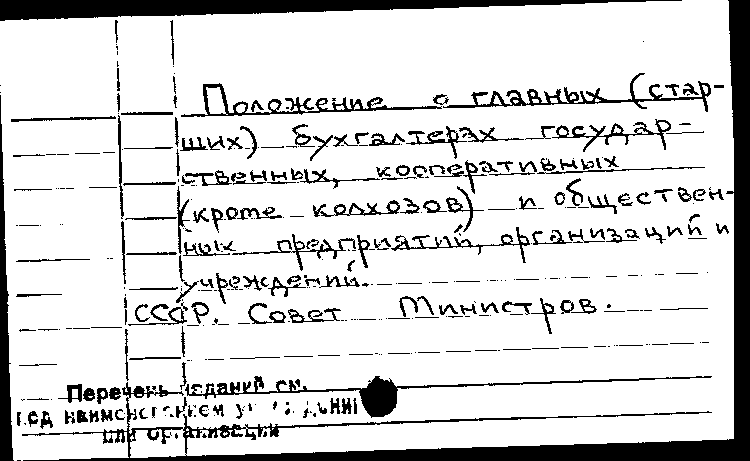 Положение о главных (стар-
ших) бухгалтерах государ-
ственных, кооперативных
(кроме колхозов) и обществен-
ных предприятий, организаций и
учреждений.
СССР. Совет Министров.
Перечень изданий см.
под наименованием учреждений
или организации